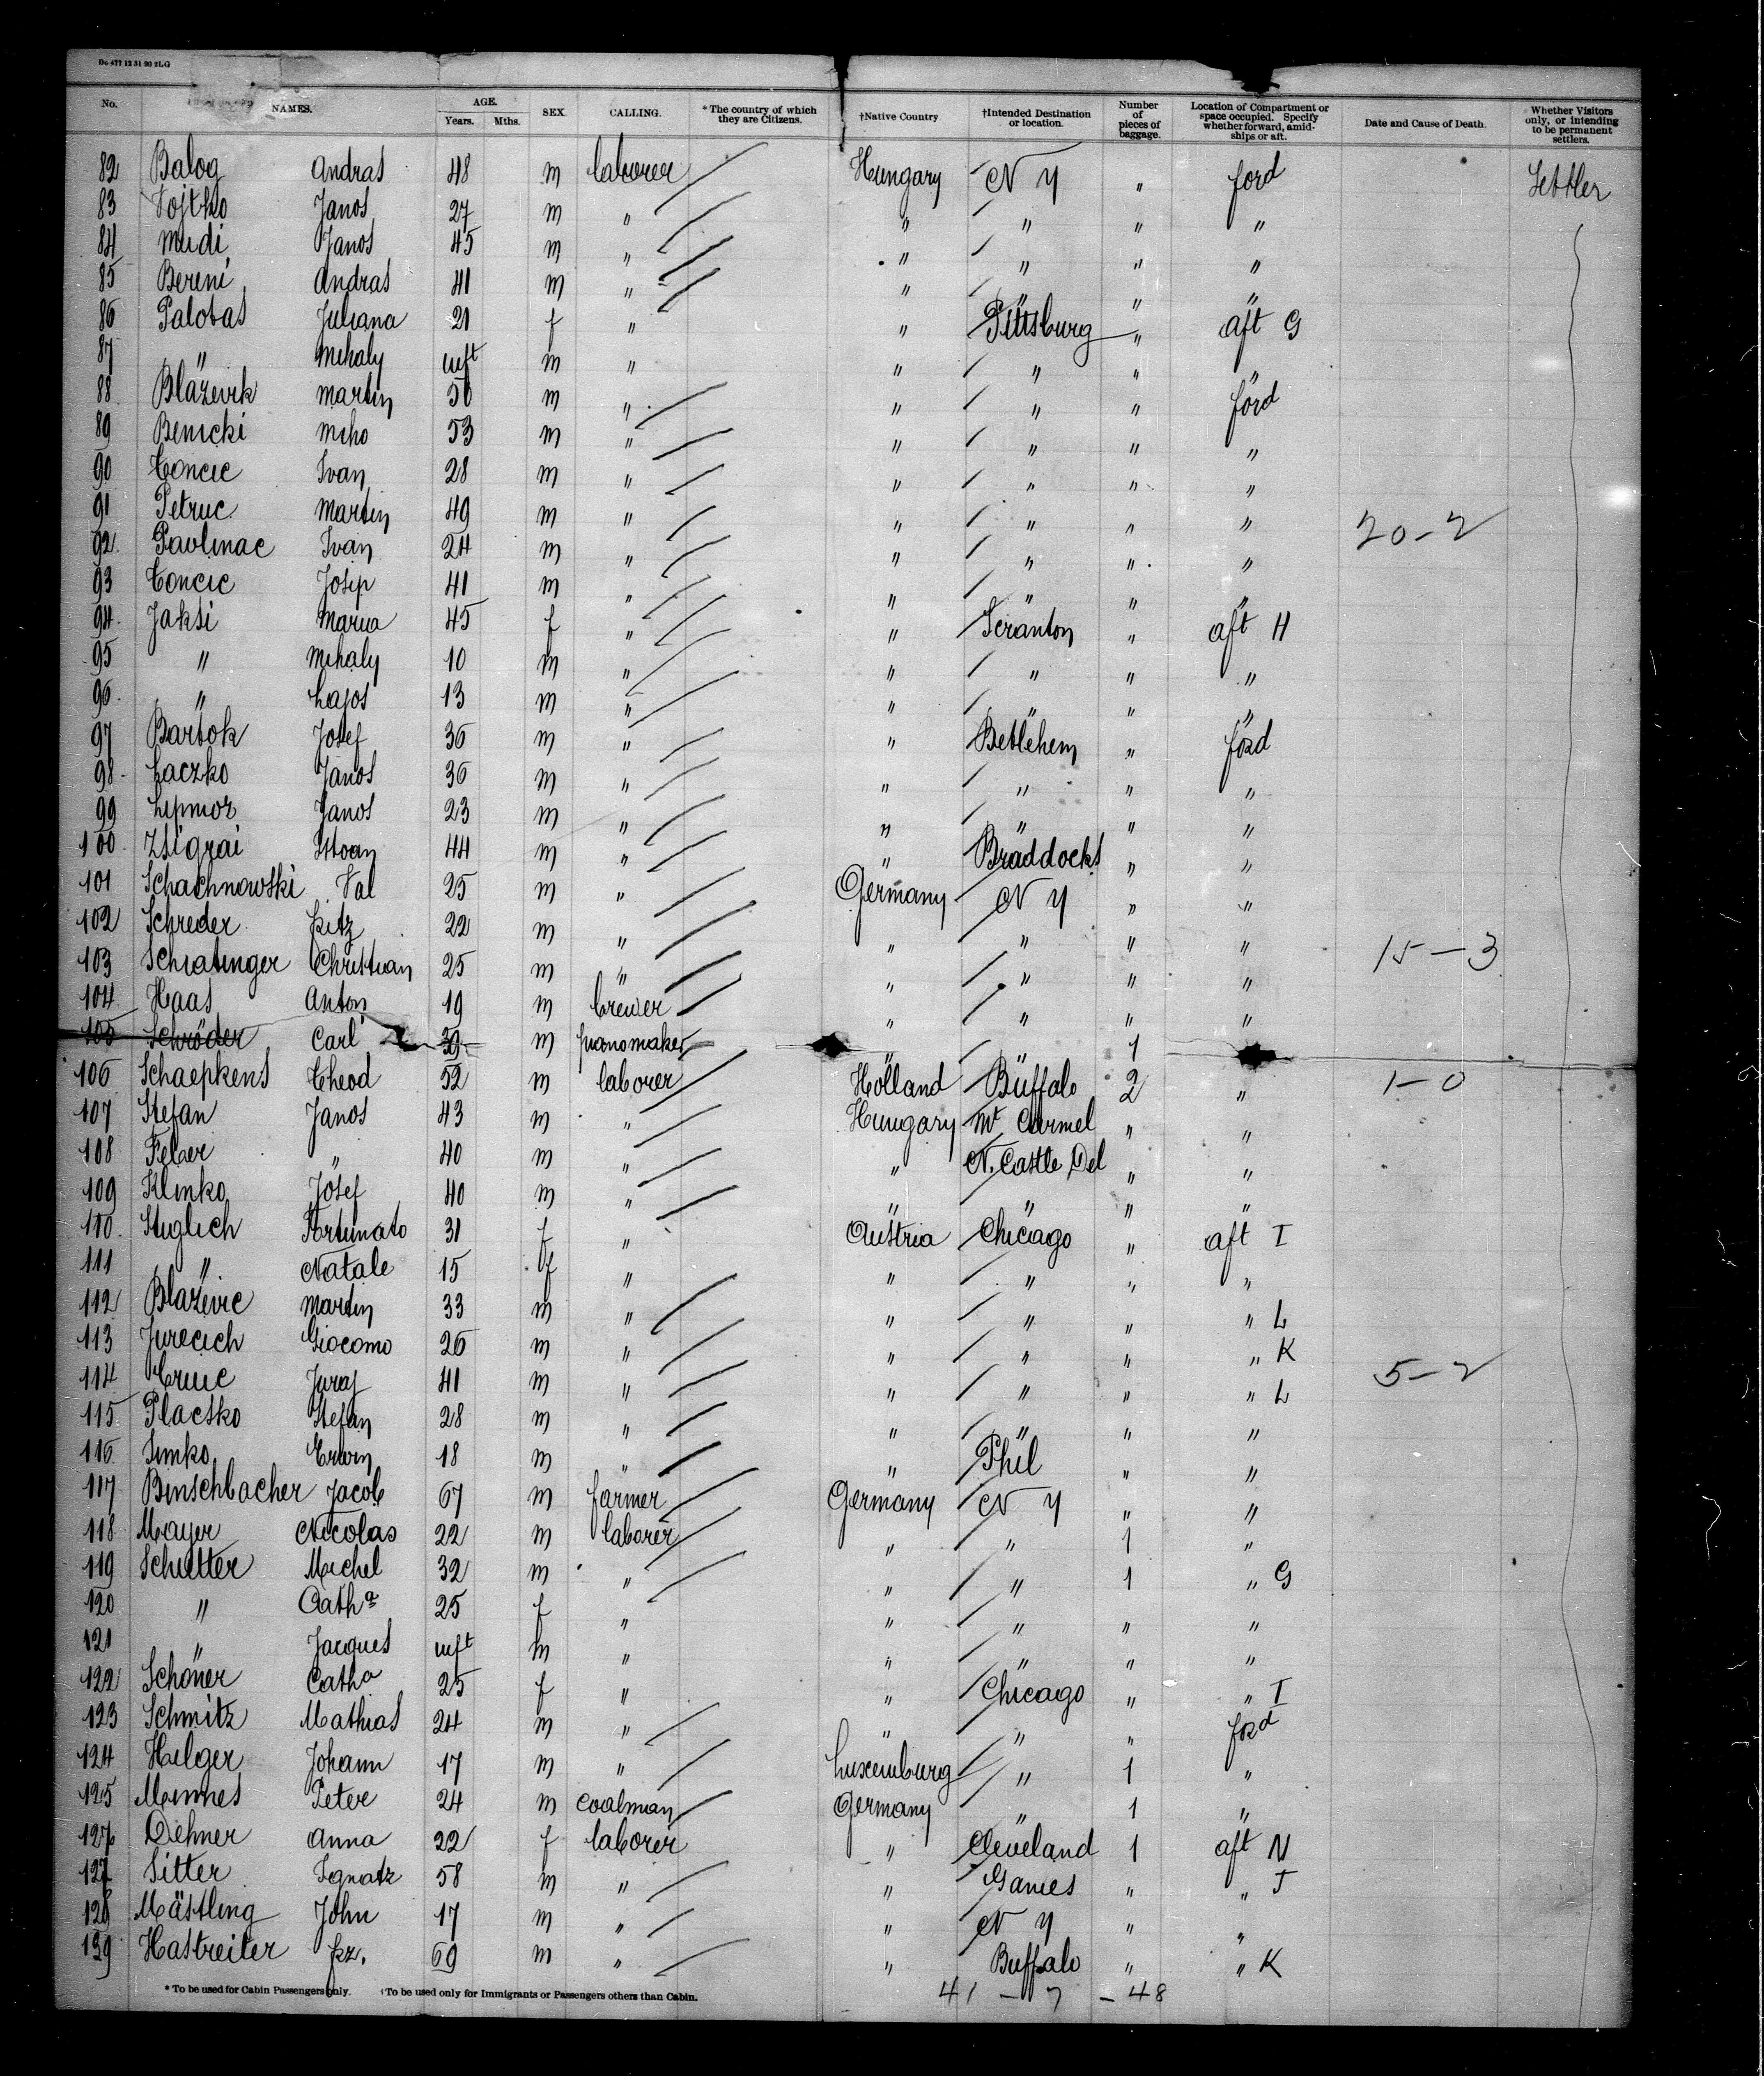 Do 477 12 31 90 2LG
No. NAMES. AGE. Years. Mths. SEX. CALLING. *The country of which they are Citizens. †Native Country †Intended Destination or location. Number of pieces of baggage. Location of Compartment or space occupied. Specify whether forward, amid-ships or aft. Date and Cause of Death. Whether Visitors only, or intending to be permanent settlers.
82 Balog Andras 48 m laborer Hungary N Y " ford Settler
83 Vojtko Janos 27 m " " " " "
84 Mudi Janos 45 m " " " " "
85 Bereni Andras 41 m " " " " "
86 Palotas Juliana 21 f " " Pittsburg " aft G
87 " Mihaly inft m " " " " "
88 Blazevik Martin 50 m " " " " ford
89 Benicki Miho 53 m " " " " "
90 Concic Ivan 28 m " " " " "
91 Petruc Martin 49 m " " " " " 20-2
92 Pavlinac Ivan 24 m " " " " "
93 Concic Josip 41 m " " " " "
94 Jaksi Maria 45 f " " Scranton " aft H
95 " Mihaly 10 m " " " " "
96 " Lajos 13 m " " " " "
97 Bartok Josef 36 m " " Betlehem " ford
98 Laczko Janos 36 m " " " " "
99 Janos 23 m " " " " "
100 Zsigrai Istvan 44 m " " Braddocks " "
101 Schachnowski Val 25 m " Germany N Y " "
102 Schreder Fritz 22 m " " " " "
103 Schratinger Christian 25 m " " " " " 15-3
104 Haas Anton 19 m brewer " " " "
105 Schröder Carl 39 m pianomaker 1
106 Schaepkens Theod 52 m laborer Holland Buffalo 2 " 1-0
107 Stefan Janos 43 m " Hungary Mt Carmel " "
108 Feber " 40 m " " N. Castle Del " "
109 Klinko Josef 40 m " " " " "
110 Stuglich Fortunato 31 f " Austria Chicago " aft I
111 " Natale 15 f " " " " "
112 Blazevic Martin 33 m " " " " " L
113 Jurecich Giacomo 26 m " " " " " K
114 Juraj 41 m " " " " " L 5-2
115 Placsko Stefan 28 m " " " " "
116 Simko Erwin 18 m " " Phil " "
117 Binschbacher Jacob 67 m farmer Germany N Y " "
118 Mayer Nicolas 22 m laborer " " 1 "
119 Schutter Michel 32 m " " " 1 " G
120 " Catha 25 f " " " " "
121 " Jacques inft m " " " " "
122 Schoner Catha 25 f " " Chicago " " I
123 Schmitz Mathias 24 m " " " " ford
124 Hilger Johann 17 m " Luxemburg " 1 "
125 Minnes Peter 24 m coalman Germany " 1 "
126 Diehner Anna 22 f laborer " Cleveland 1 aft N
127 Sitter Ignatz 58 m " " Ganies " " J
128 Mästling John 17 m " " N Y " "
129 Hastreiter Frz. 69 m " " Buffalo " " K
*To be used for Cabin Passengers only. †To be used only for Immigrants or Passengers others than Cabin. 41 - 7 - 48